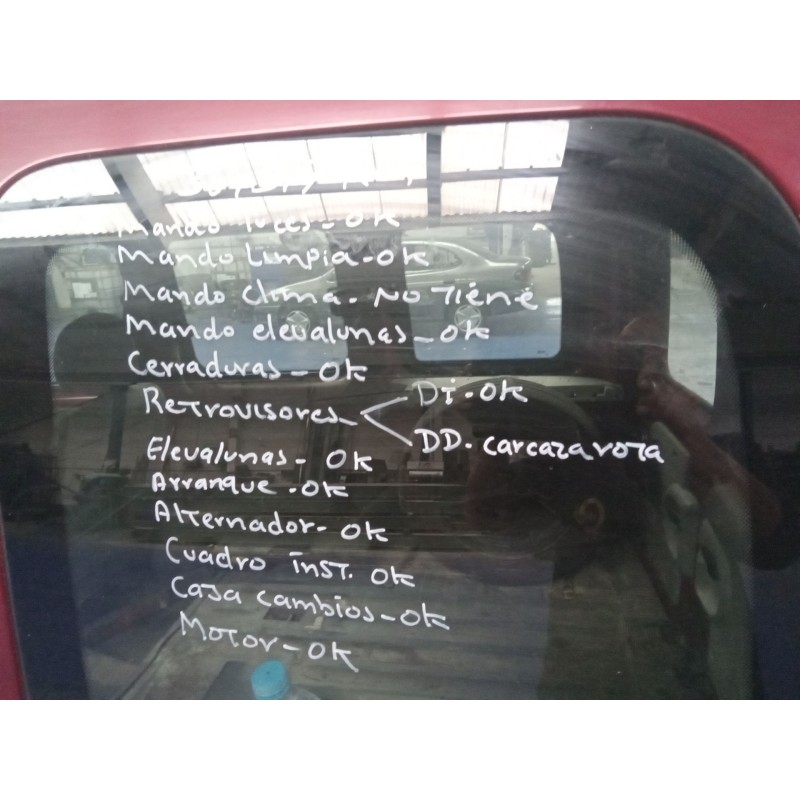 Mando luces - OK
Mando Limpia - OK
Mando Clima - No Tiene
Mando elevalunas - OK
Cerraduras - OK
Retrovisores - Di - OK
DD. carcaza rota
Elevalunas - OK
Arranque - OK
Alternador - OK
Cuadro inst. OK
Caja cambios - OK
Motor - OK